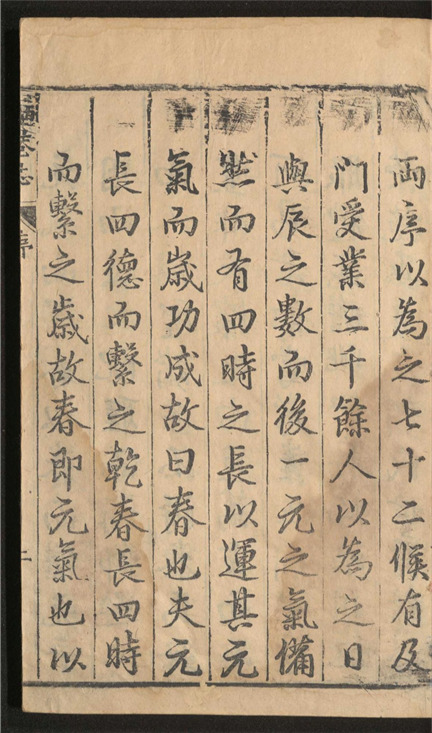 両序以為之七十二候有及
門受業三千餘人以為之日
與辰之數而後一元之氣備
然而有四時之長以運其元
氣而歳功成故曰春也夫元
長四德而繫之乾春長四時
而繫之歳故春即元氣也以
序
二